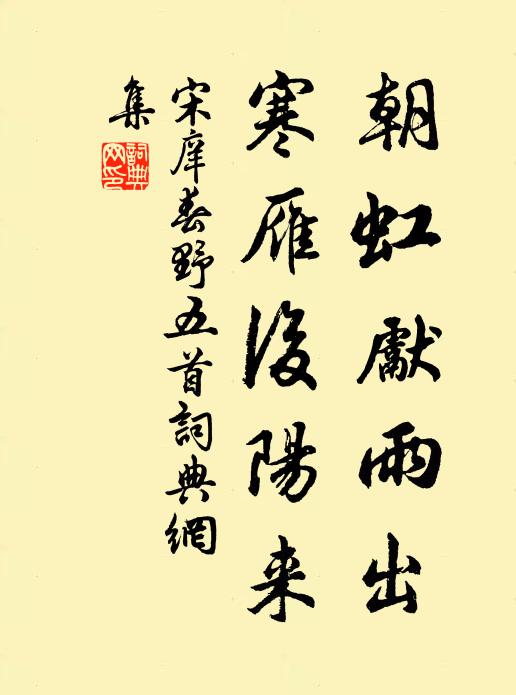 朝虹獻雨出
寒雁後陽来
宋庠春野五首詞典網
集
詞典
网印